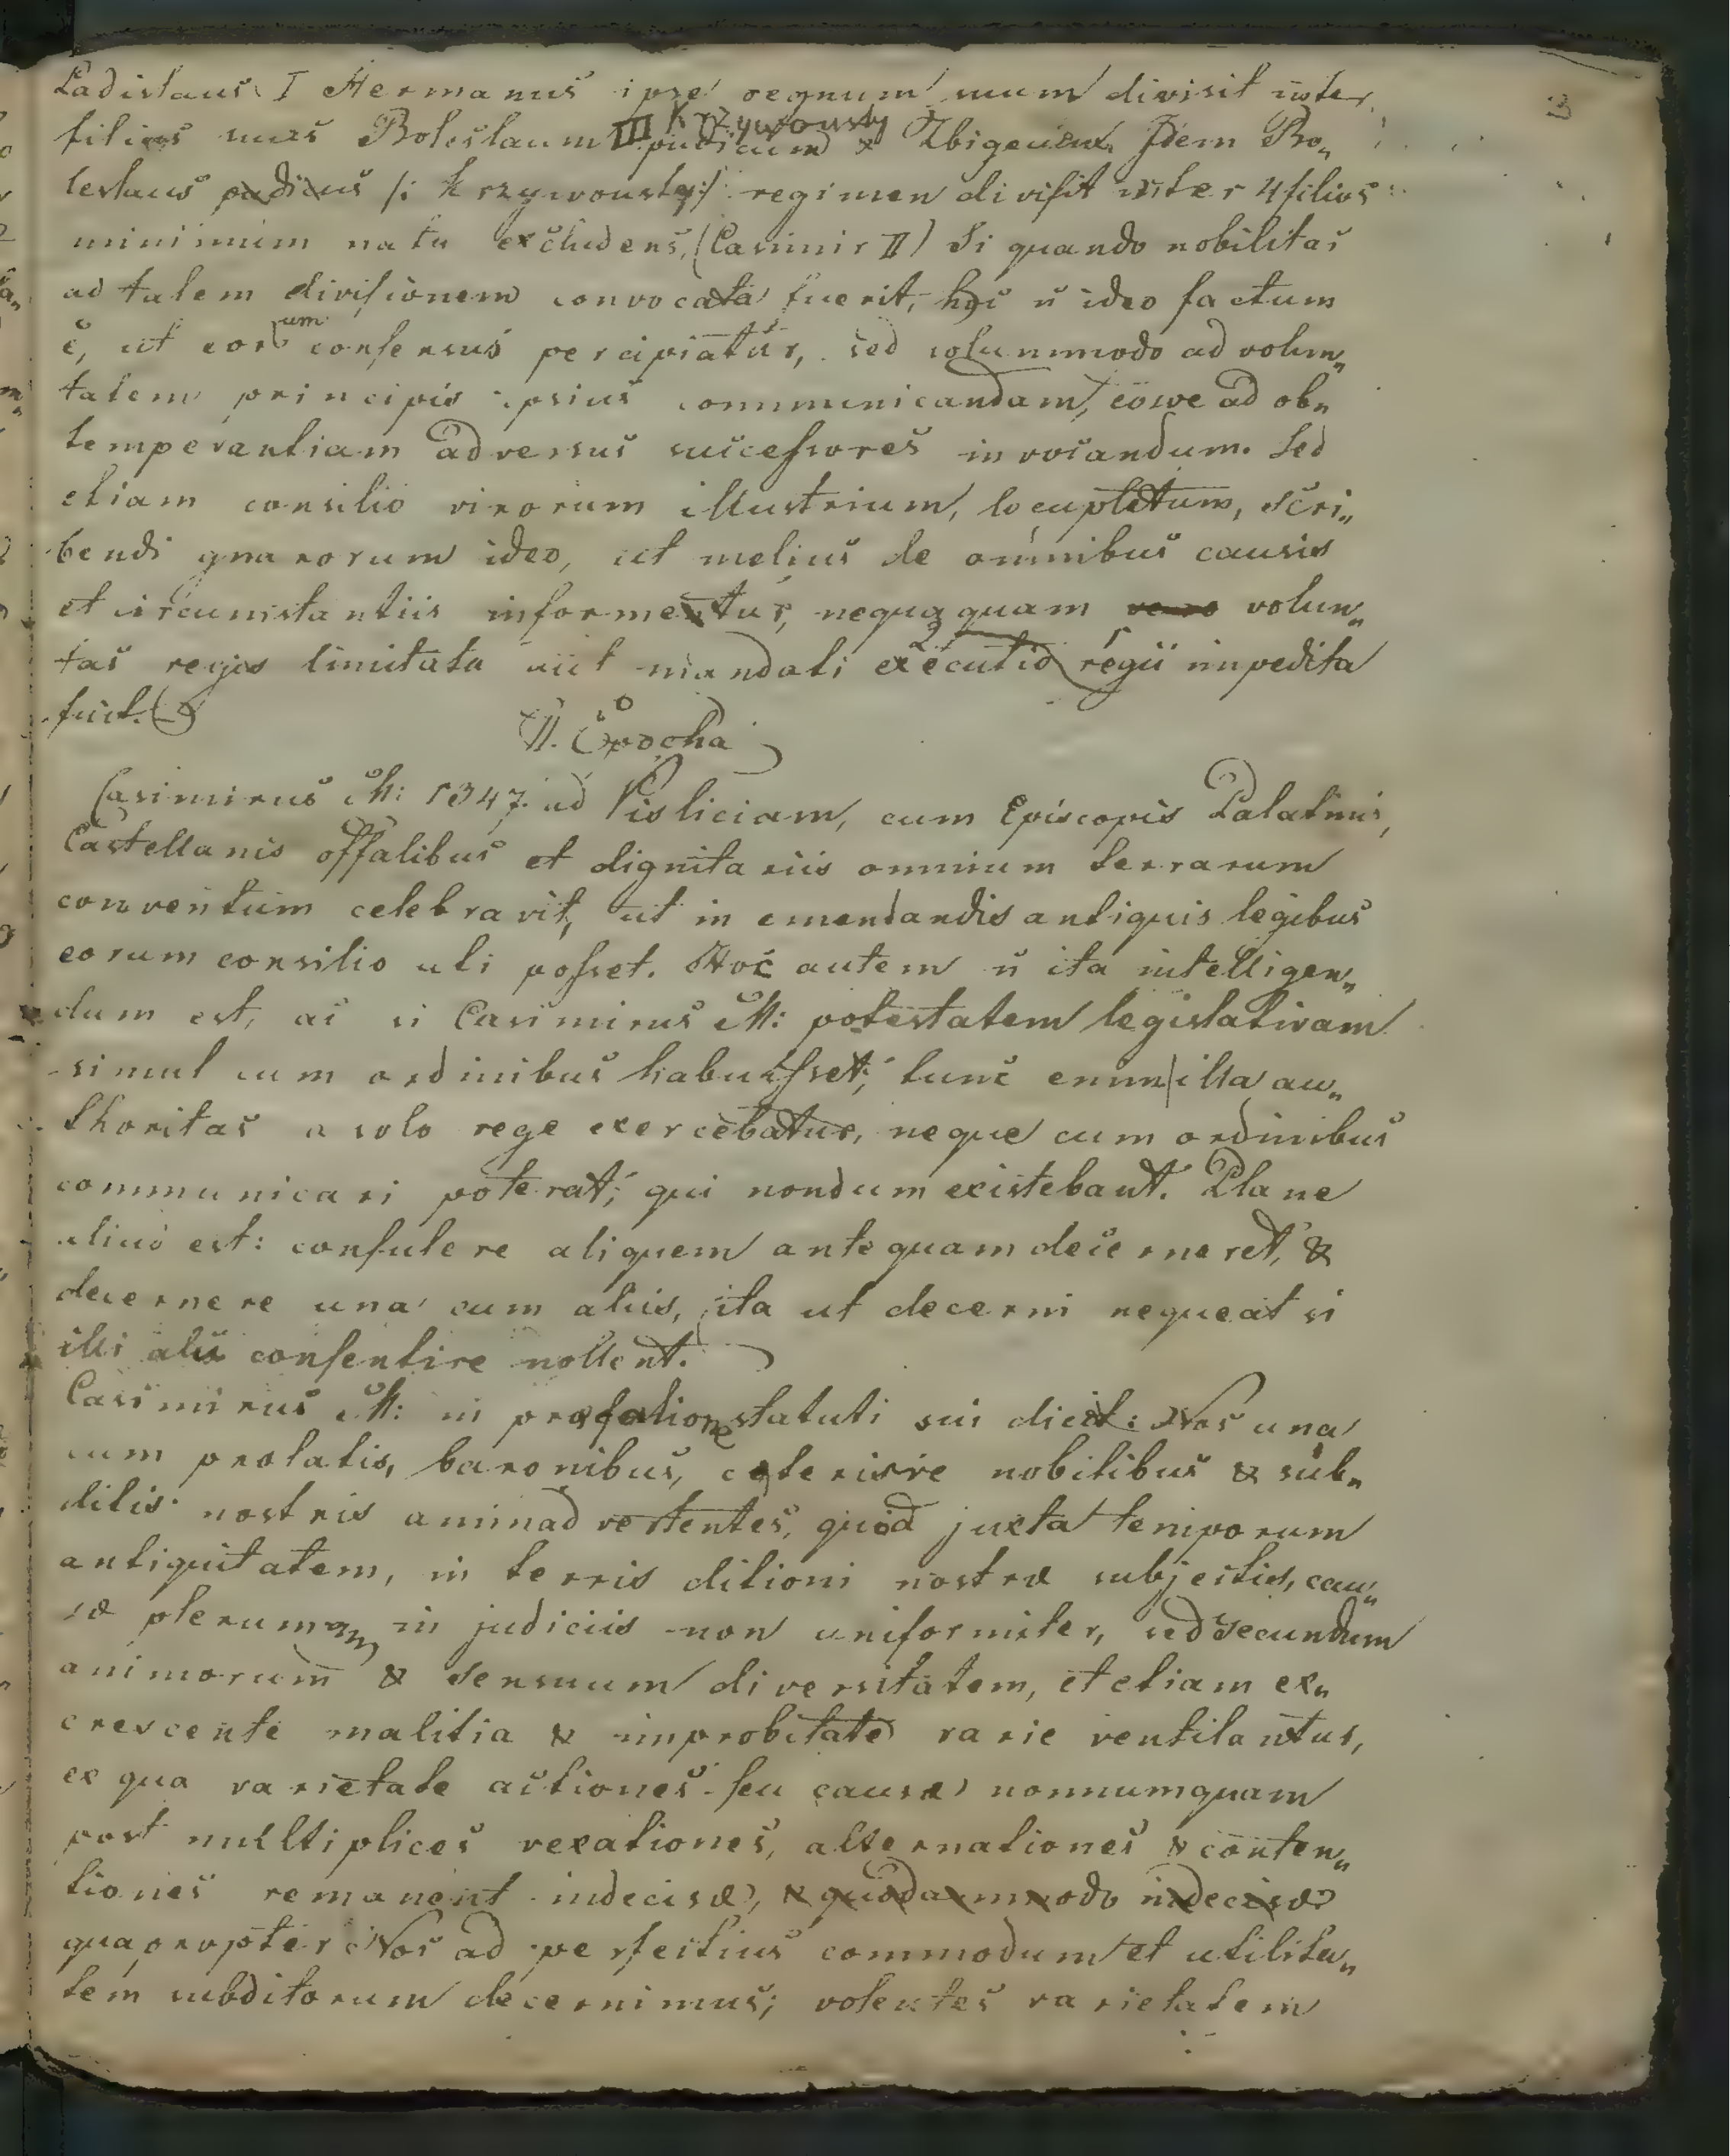 3
Ladislaus I Hermanus ipse regnum suum divisit inter
filios suos Boleslaum III Krzywousty pudicum & Zbigeum. Idem Bo„
leslaus pudicus /: krzywousty :/ regimen divisit inter 4 filios
minimum natu excludens, (Casimir II) Si quando nobilitas
ad talem divisionem convocata fuerit, hoc n̄ ideo factum
ē, ut eorum consensus percipiatur, sed solummodo ad volun„
tatem principis ipsius communicandam, eosve ad ob„
temperantiam adversus successores invocandum. Sed
etiam consilio virorum illustrium, locupletum, scri„
bendi gnarorum ideo, ut melius de omnibus causis
et circumstantiis informetur, nequaquam vero volun„
tas regis limitata aut mandati executio regii impedita
fuit.
II. Epocha
Casimirus M: 1347. ad Visliciam, cum Episcopis Palatinis,
Castellanis offalibus et dignitariis omnium terrarum
conventum celebravit, ut in emendandis antiquis legibus
eorum consilio uti posset. Hoc autem n̄ ita intelligen„
dum est, ac si Casimirus M: potestatem legislativam
simul cum ordinibus habuisset; tunc enim illa au„
thoritas a solo rege exercebatur, neque cum ordinibus
communicari poterat; qui nondum existebant. Plane
aliud est: consulere aliquem antequam decerneret, &
decernere una cum aliis, ita ut decerni nequeat si
illi alii consentire nollent.
Casimirus M: in præfatione statuti sui dicit: Nos una
cum prelatis, baronibus, ceterisve nobilibus & sub„
ditis nostris animadvertentes, quod juxta temporum
antiquitatem, in terris ditioni nostræ subjectis, cau„
sæ plerumque in judiciis non uniformiter, sed secundum
animorum & sensuum diversitatem, et etiam ex„
crescente malitia & improbitate varie ventilantur,
ex qua varietate actiones seu causæ nonnumquam
post multiplices vexationes, alternationes & conten„
tiones remanent indecisæ, & quodammodo indecisæ
quapropter Nos ad perfectius commodum et utilita„
tem subditorum decernimus; volentes varietatem